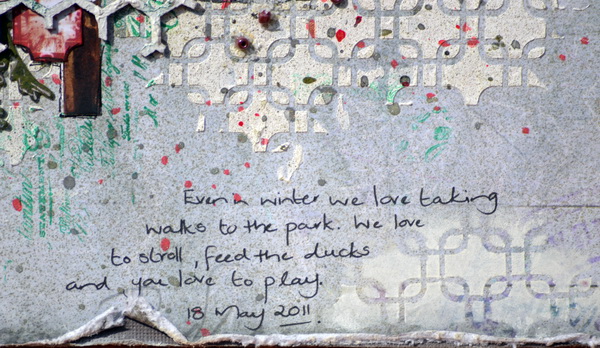 Even in winter we love taking
walks to the park. We love
to stroll, feed the ducks
and you love to play.
18 May 2011.